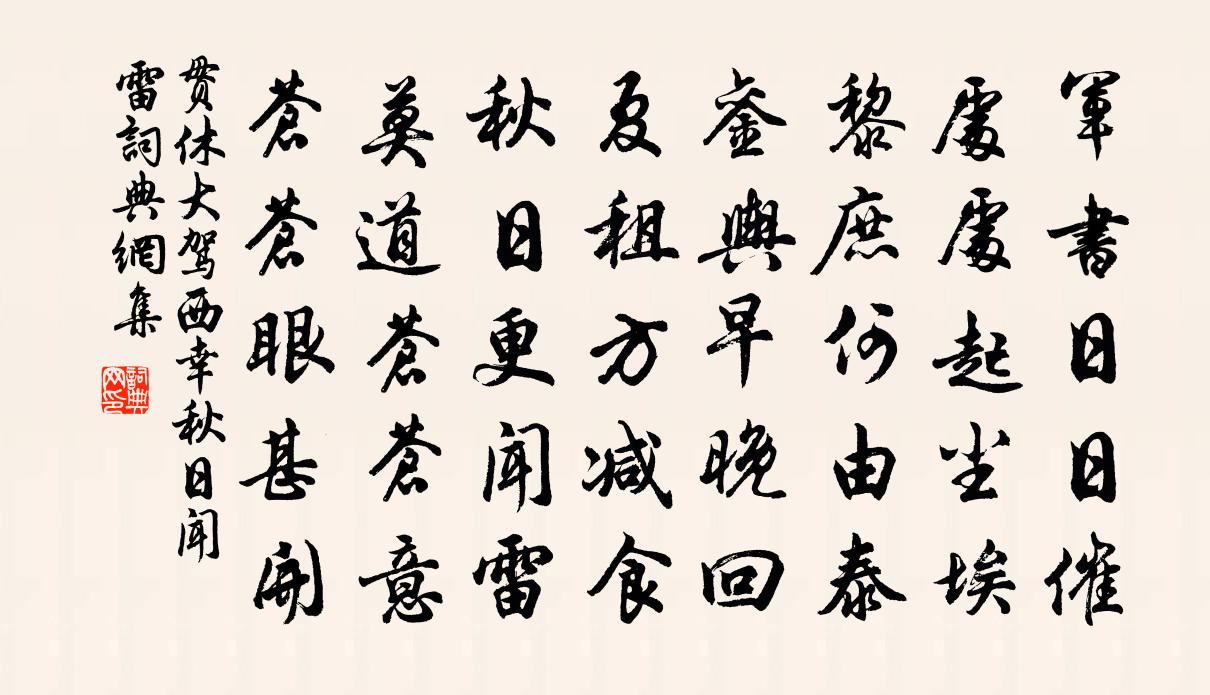 軍書日日催
處處起尘埃
黎庶何由泰
銮輿早晚回
夏租方减食
秋日更聞雷
莫道蒼蒼意
蒼蒼眼甚開
貫休大駕西幸秋日聞
雷詞典網集
詞典网印